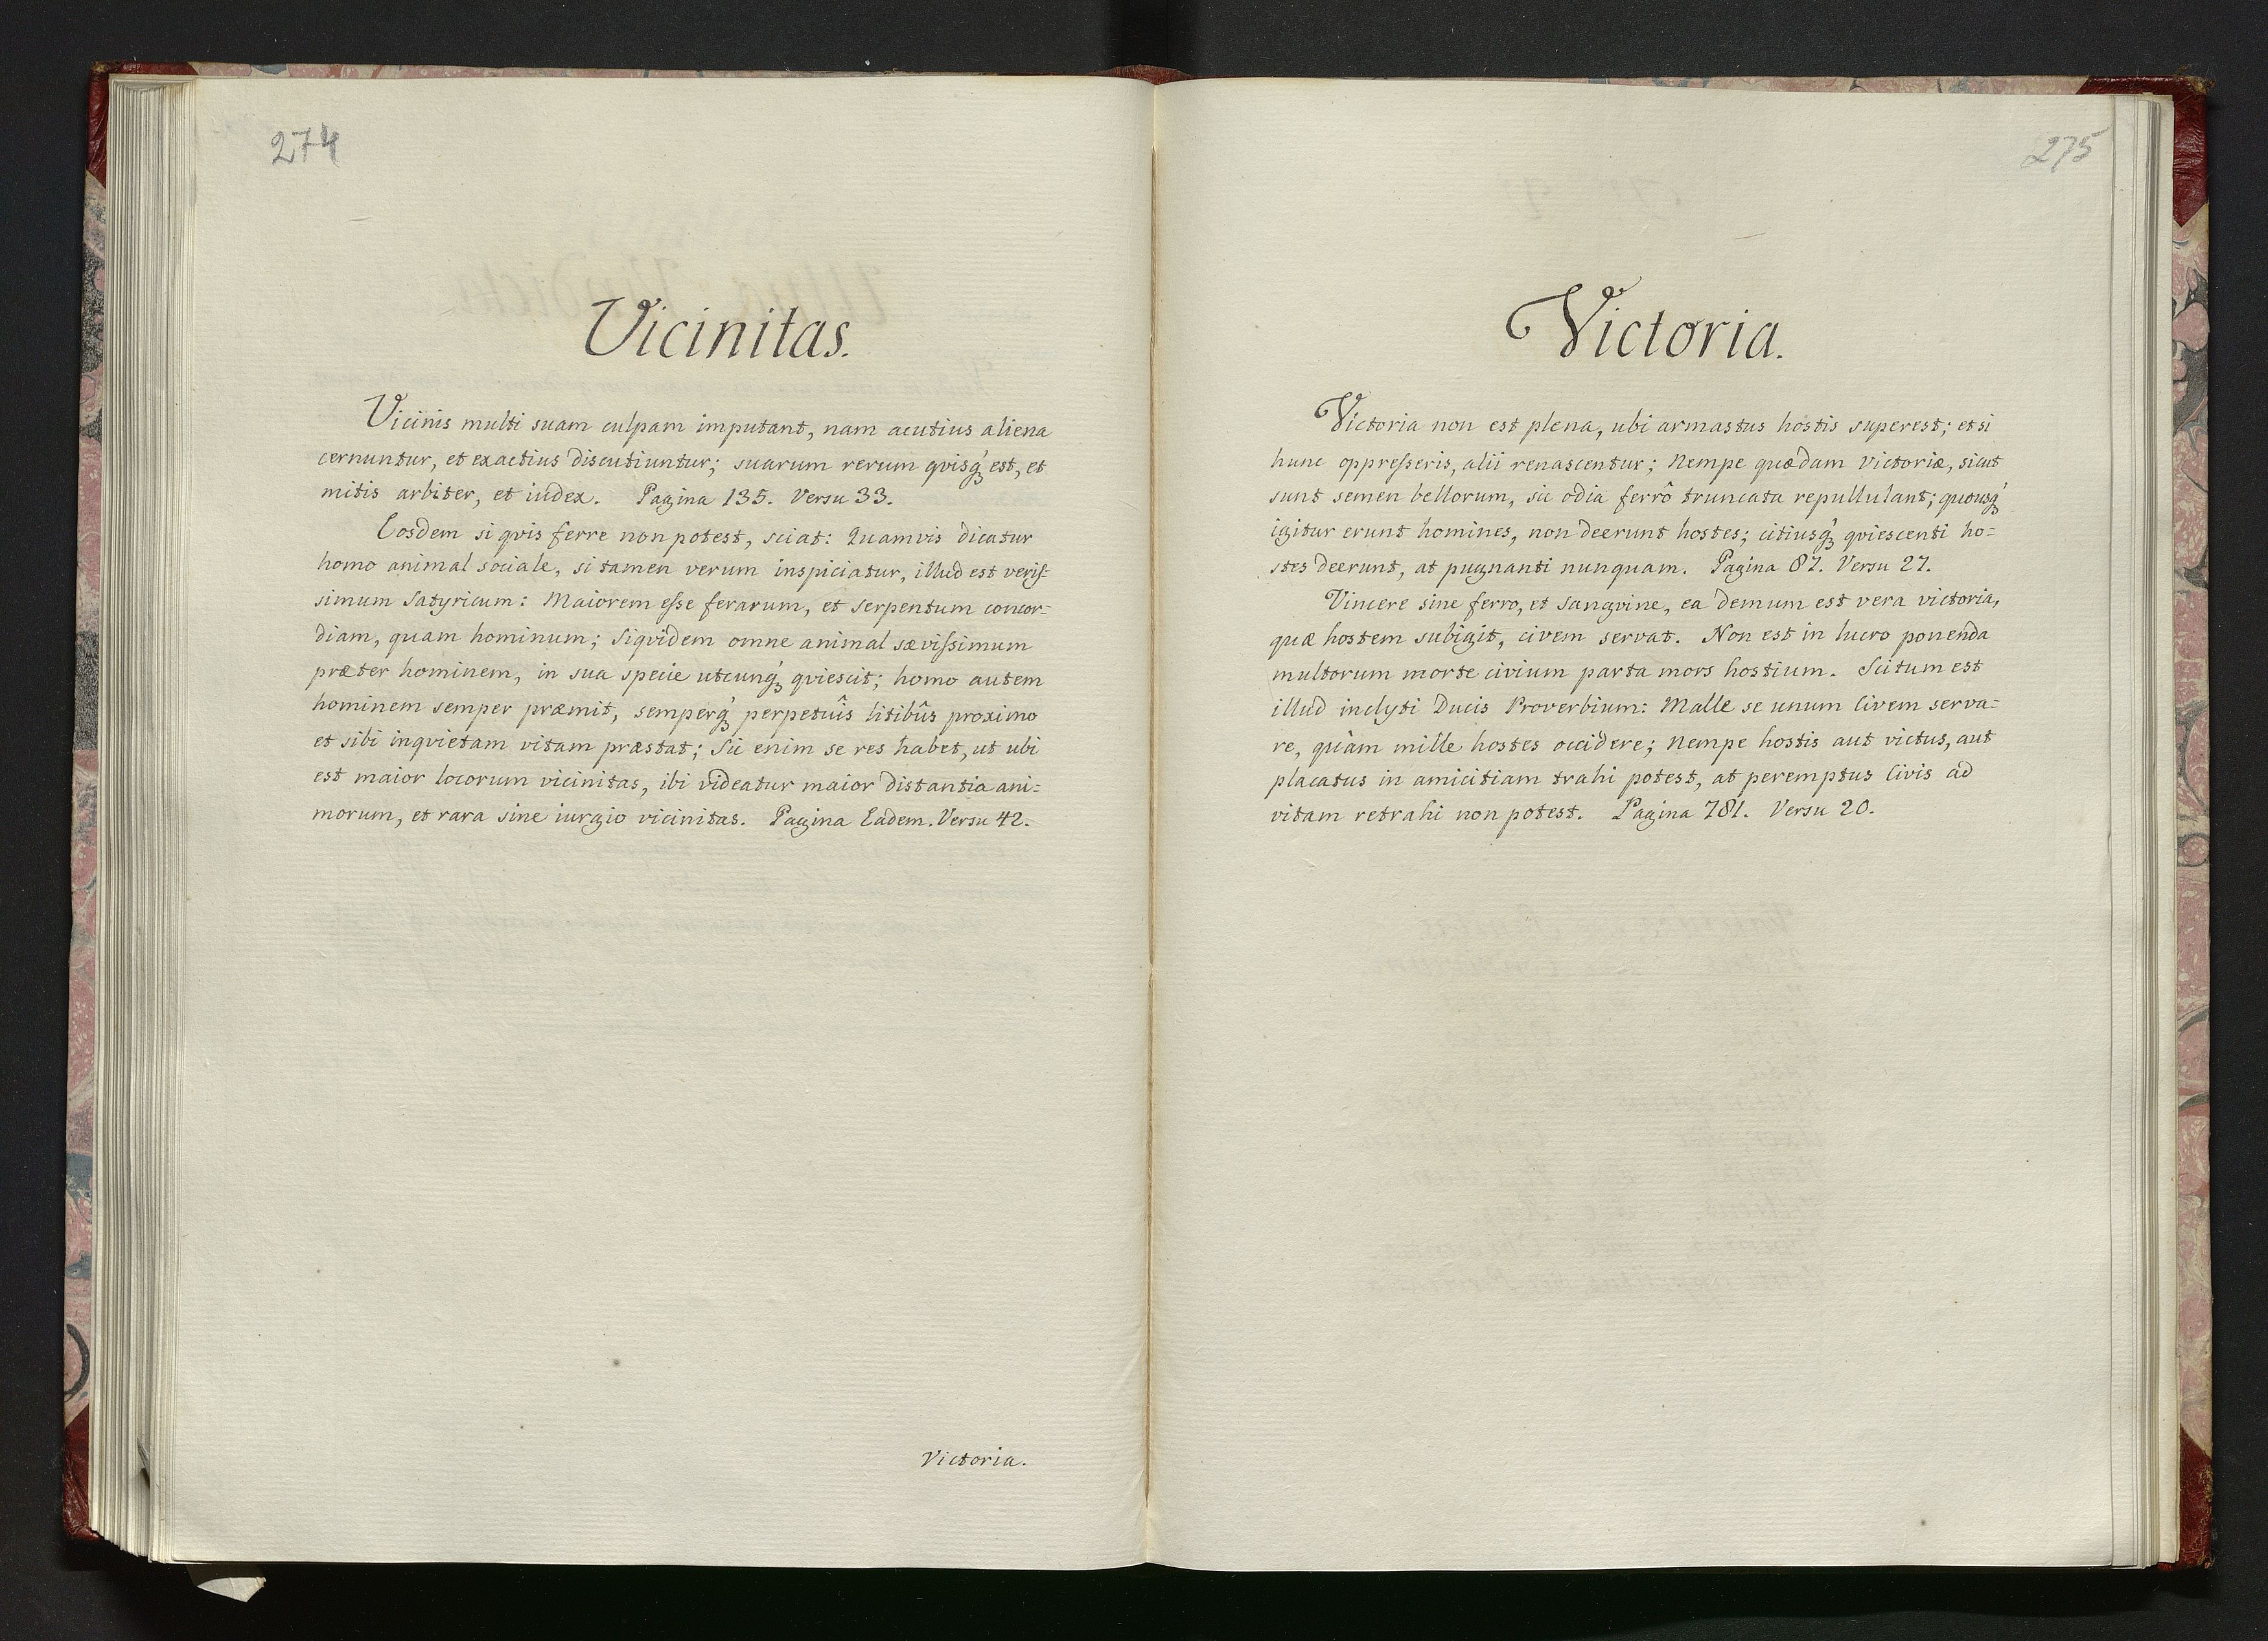 274
Vicinitas.
Vicinis multi suam culpam imputant, nam acutius aliena
cernuntur, et exactius discutiuntur; suarum rerum qvisq́ est, et
mitis arbiter, et iudex. Pagina 135. Versu 33.
Eosdem si qvis ferre non potest, sciat: Quamvis dicatur
homo animal sociale, si tamen verum inspiciatur, illud est veris-
simum Satyricum: Maiorem esse ferarum, et Serpentum concor=
diam, quam hominum; Siqvidem omne animal sævissimum
præter hominem, in sua specie utcunq́ qviescit; homo autem
hominem semper præmit, semperq́ perpetuîs litibûs proximo
et sibi inqvietam vitam præstat; Sic enim se res habet, ut ubi
est maior locorum vicinitas, ibi videatur maior distantia ani=
morum, et rara sine iurgio vicinitas. Pagina Eadem. Versu 42.
Victoria.
275
Victoria.
Victoria non est plena, ubi armastus hostis superest; etsi
hunc oppresseris, alii renascentur; Nempe quædam Victoriæ, sicut
sunt semen bellorum, sic odia ferrô truncata repullulant; quousq́
igitur erunt homines, non deerunt hostes; citiusq́ qviescenti ho=
stes deerunt, at pugnanti nunquam. Pagina 87. Versu 27.
Vincere sine ferro, et Sangvine, ea demum est vera victoria,
quæ hostem subigit, civem servat. Non est in lucro ponenda
multorum morte civium parta mors hostium. Scitum est
illud inclyti Ducis Proverbium: Malle se unum Civem serva=
re, quàm mille hostes occidere; Nempe hostis aut victus, aut
placatus in amicitiam trahi potest, at peremptus Civis ad
vitam retrahi non potest. Pagina 781. Versu 20.